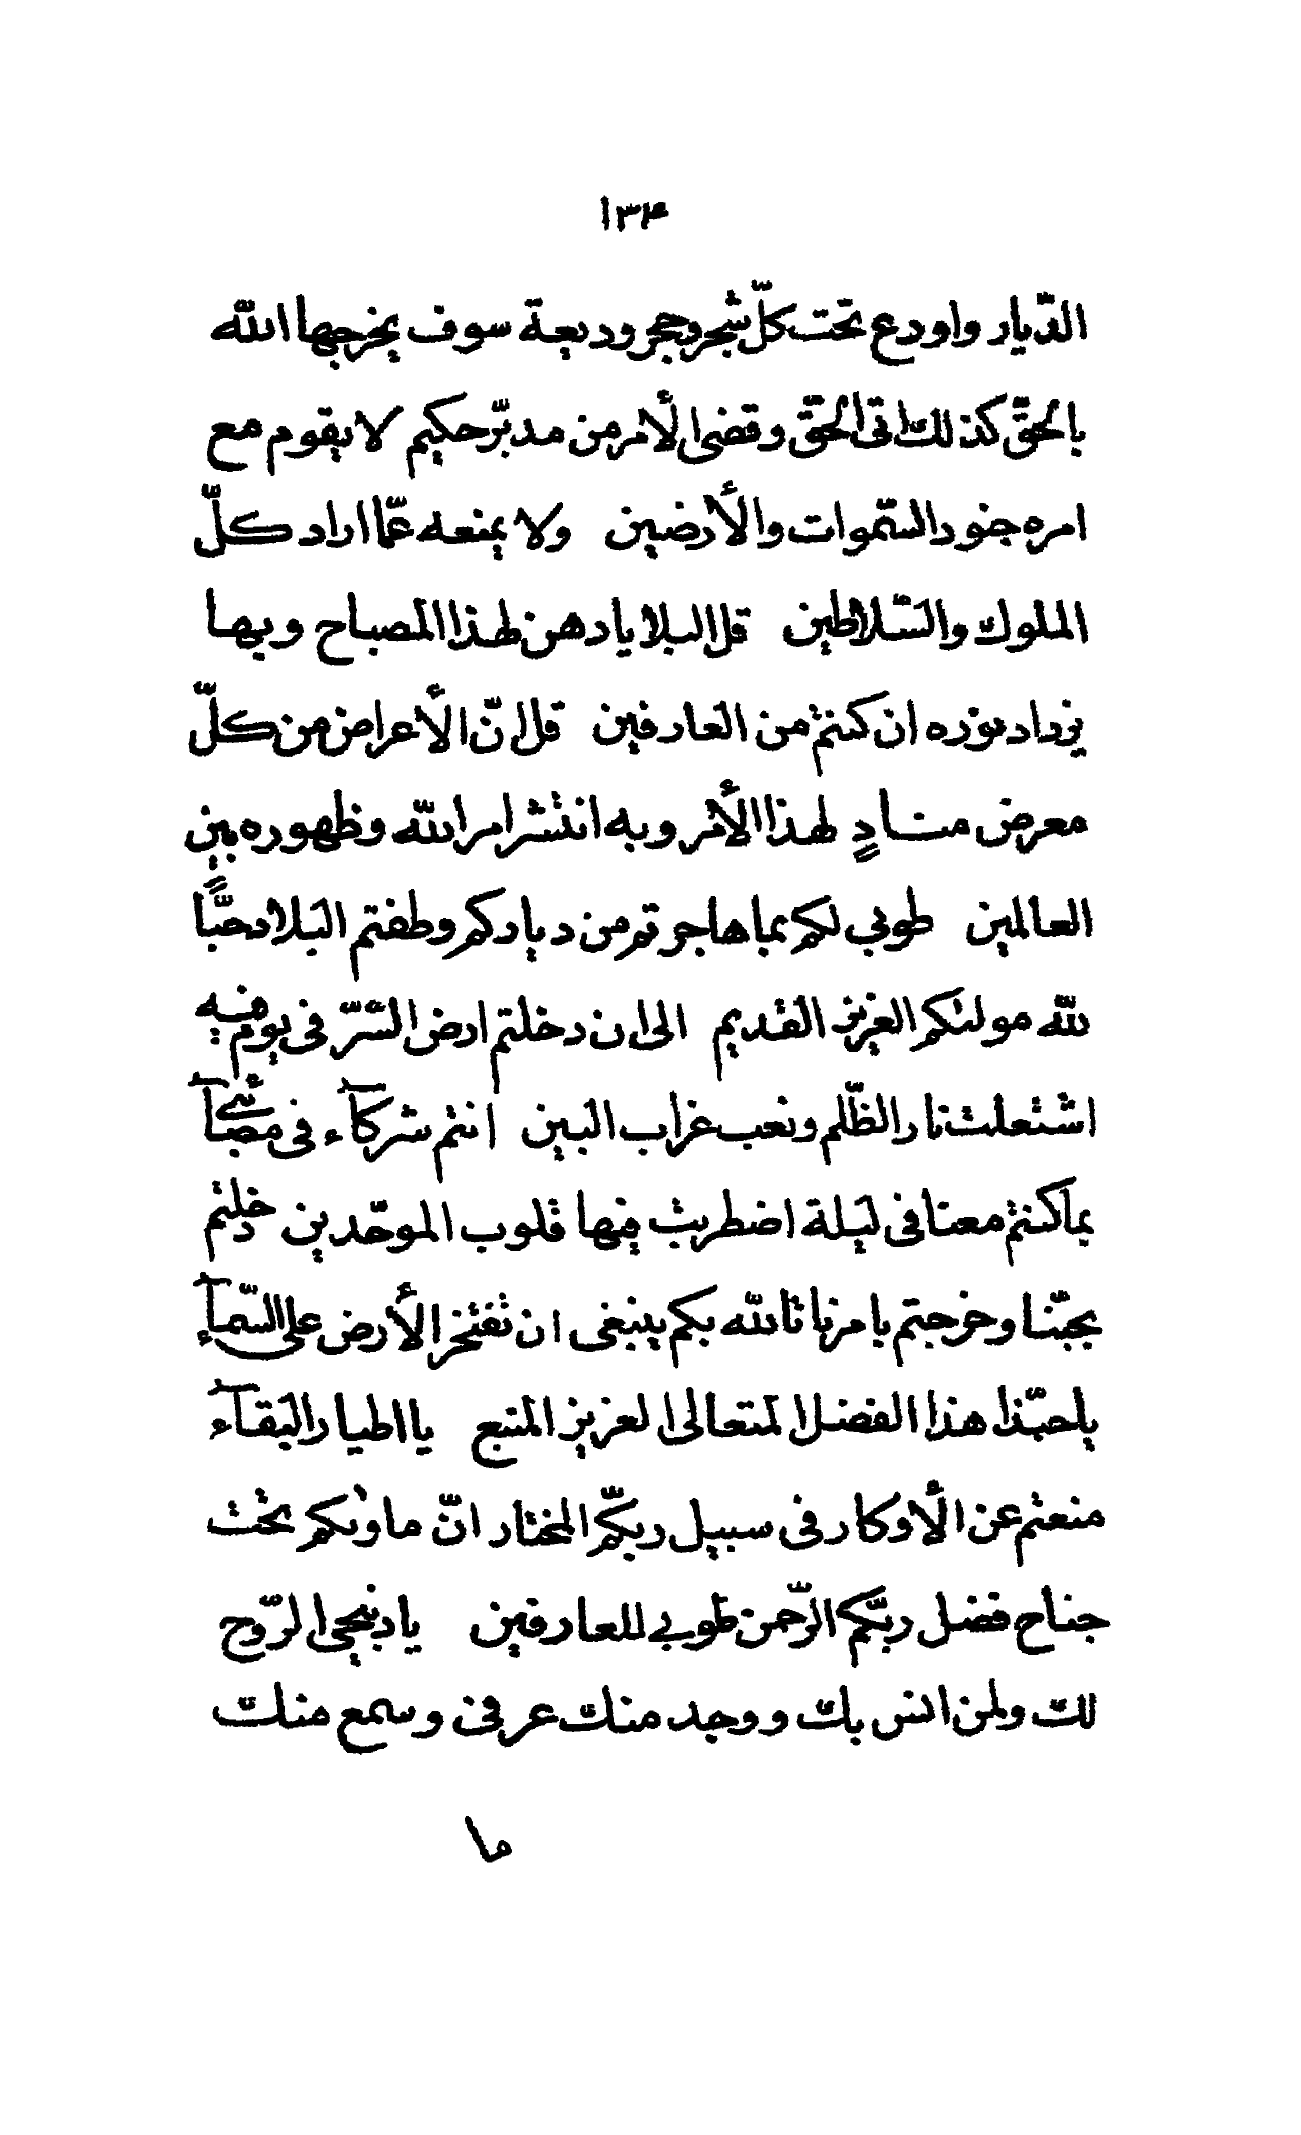 ١٣۴
الدّيار واودع تحت كلّ شجر وحجر وديعة سوف يخرجها الله
بالحقّ كذلك اتى الحقّ وقضى الأمر من مدبّر حكيم لا يقوم مع
امره جنود السّموات والأرضين ولا يمنعه عمّا اراد كلّ
الملوك والسّلاطين قل البلايا دهن لهذا المصباح وبها
يزداد نوره ان كنتم من العارفين قل انّ الأعراض من كلّ
معرض منادٍ لهذا الأمر وبه انتشر امر الله وظهوره بين
العالمين طوبى لكم بما هاجرتم من دياركم وطفتم البلاد حبًّا
لله موليكم العزيز القديم الى ان دخلتم ارض السّرّ فى يوم فيه
اشتعلت نار الظّلم ونعب غراب البين انتم شركآء فى مصآئبى
بما كنتم معنا فى ليلة اضطربت فيها قلوب الموحّدين دخلتم
بحبّنا وخرجتم بامرنا تالله بكم ينبغى ان تفتخر الأرض على السّمآء
ياحبّذا هذا الفضل المتعالى العزيز المنيع يا اطيار البقآء
منعتم عن الأوكار فى سبيل ربّكم المختار انّ ماوٰيكم تحت
جناح فضل ربّكم الرّحمن طوبى للعارفين يا ذبيحى الرّوح
لك ولمن انس بك ووجد منك عرفى وسمع منك
ما